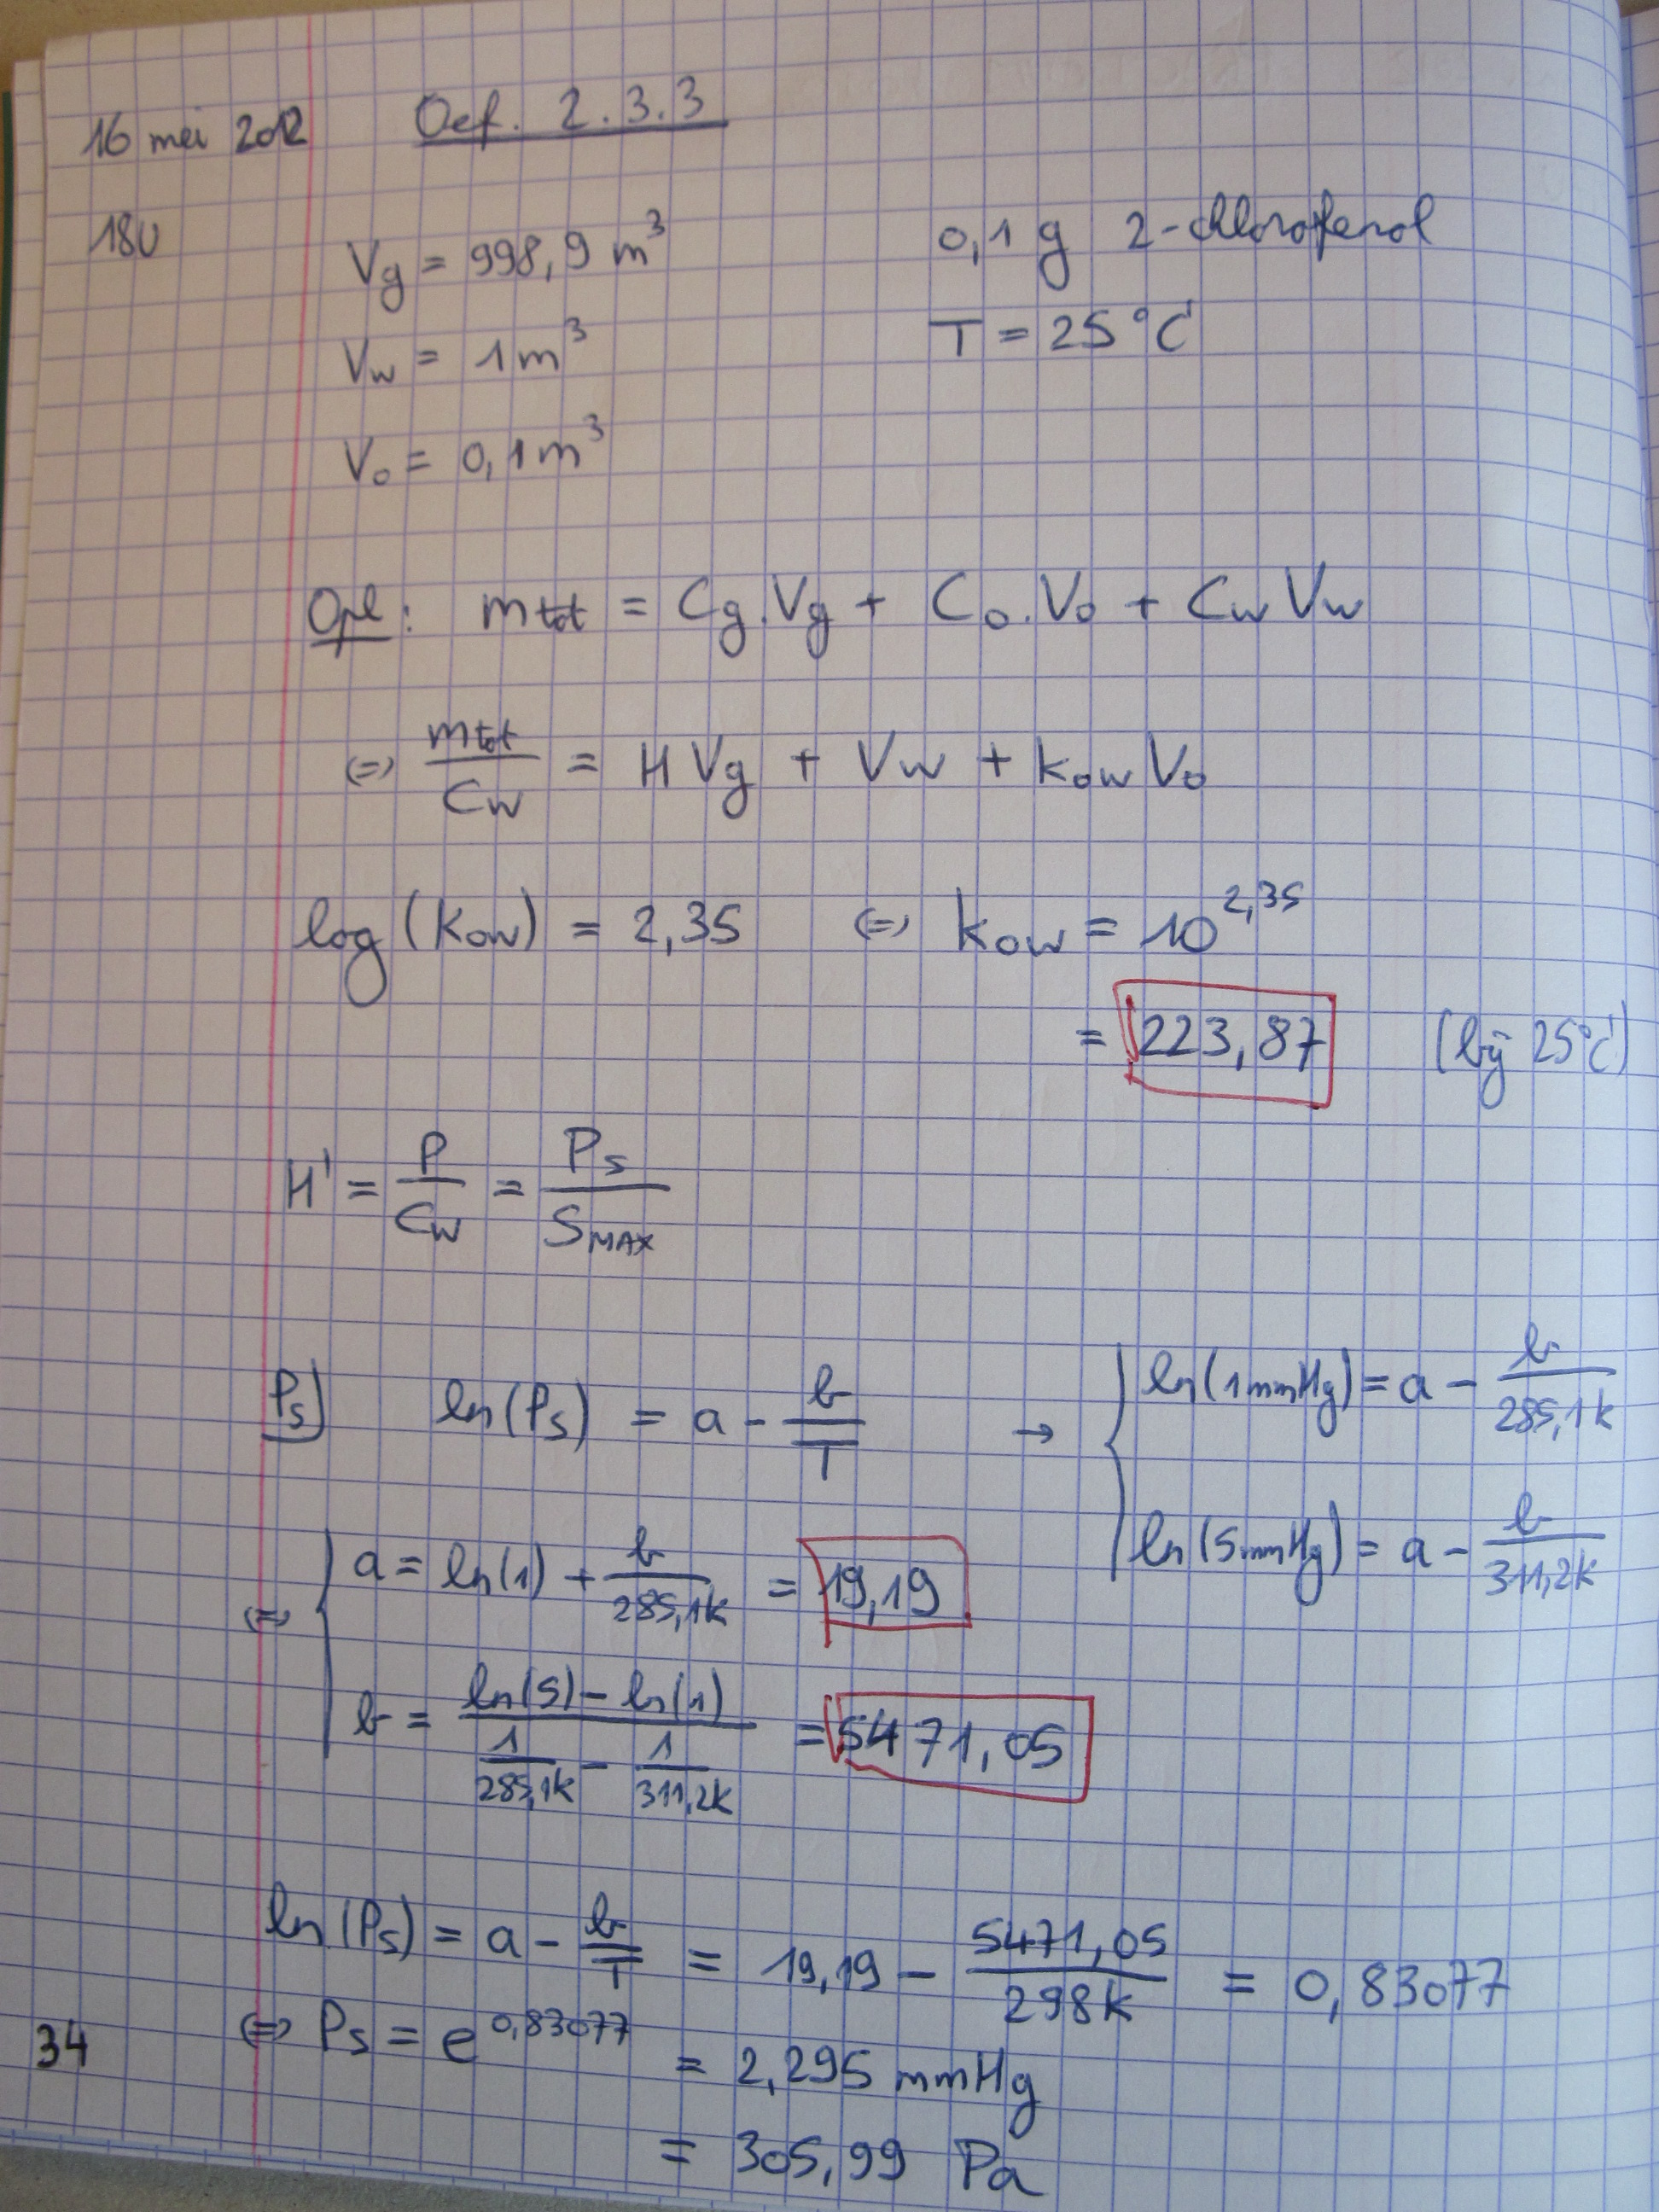 16 mei 2012 Oef. 2.3.3
18u
Vg = 998,9 m³ 0,1 g 2-chlorofenol
Vw = 1 m³ T = 25 °C
Vo = 0,1 m³
Opl: mtot = Cg.Vg + Co.Vo + Cw Vw
(=) mtot/Cw = H Vg + Vw + kow Vo
log (kow) = 2,35 (=) kow = 10^2,35
= 223,87 (bij 25°C)
H' = P/Cw = Ps/SMAX
Ps) ln(Ps) = a - b/T → { ln(1mmHg) = a - b/285,1k
ln(5mmHg) = a - b/311,2k
(=) { a = ln(1) + b/285,1k = 19,19
b = (ln(5) - ln(1))/(1/285,1k - 1/311,2k) = 5471,05
ln (Ps) = a - b/T = 19,19 - 5471,05/298k = 0,83077
(=) Ps = e^0,83077 = 2,295 mmHg
34
= 305,99 Pa